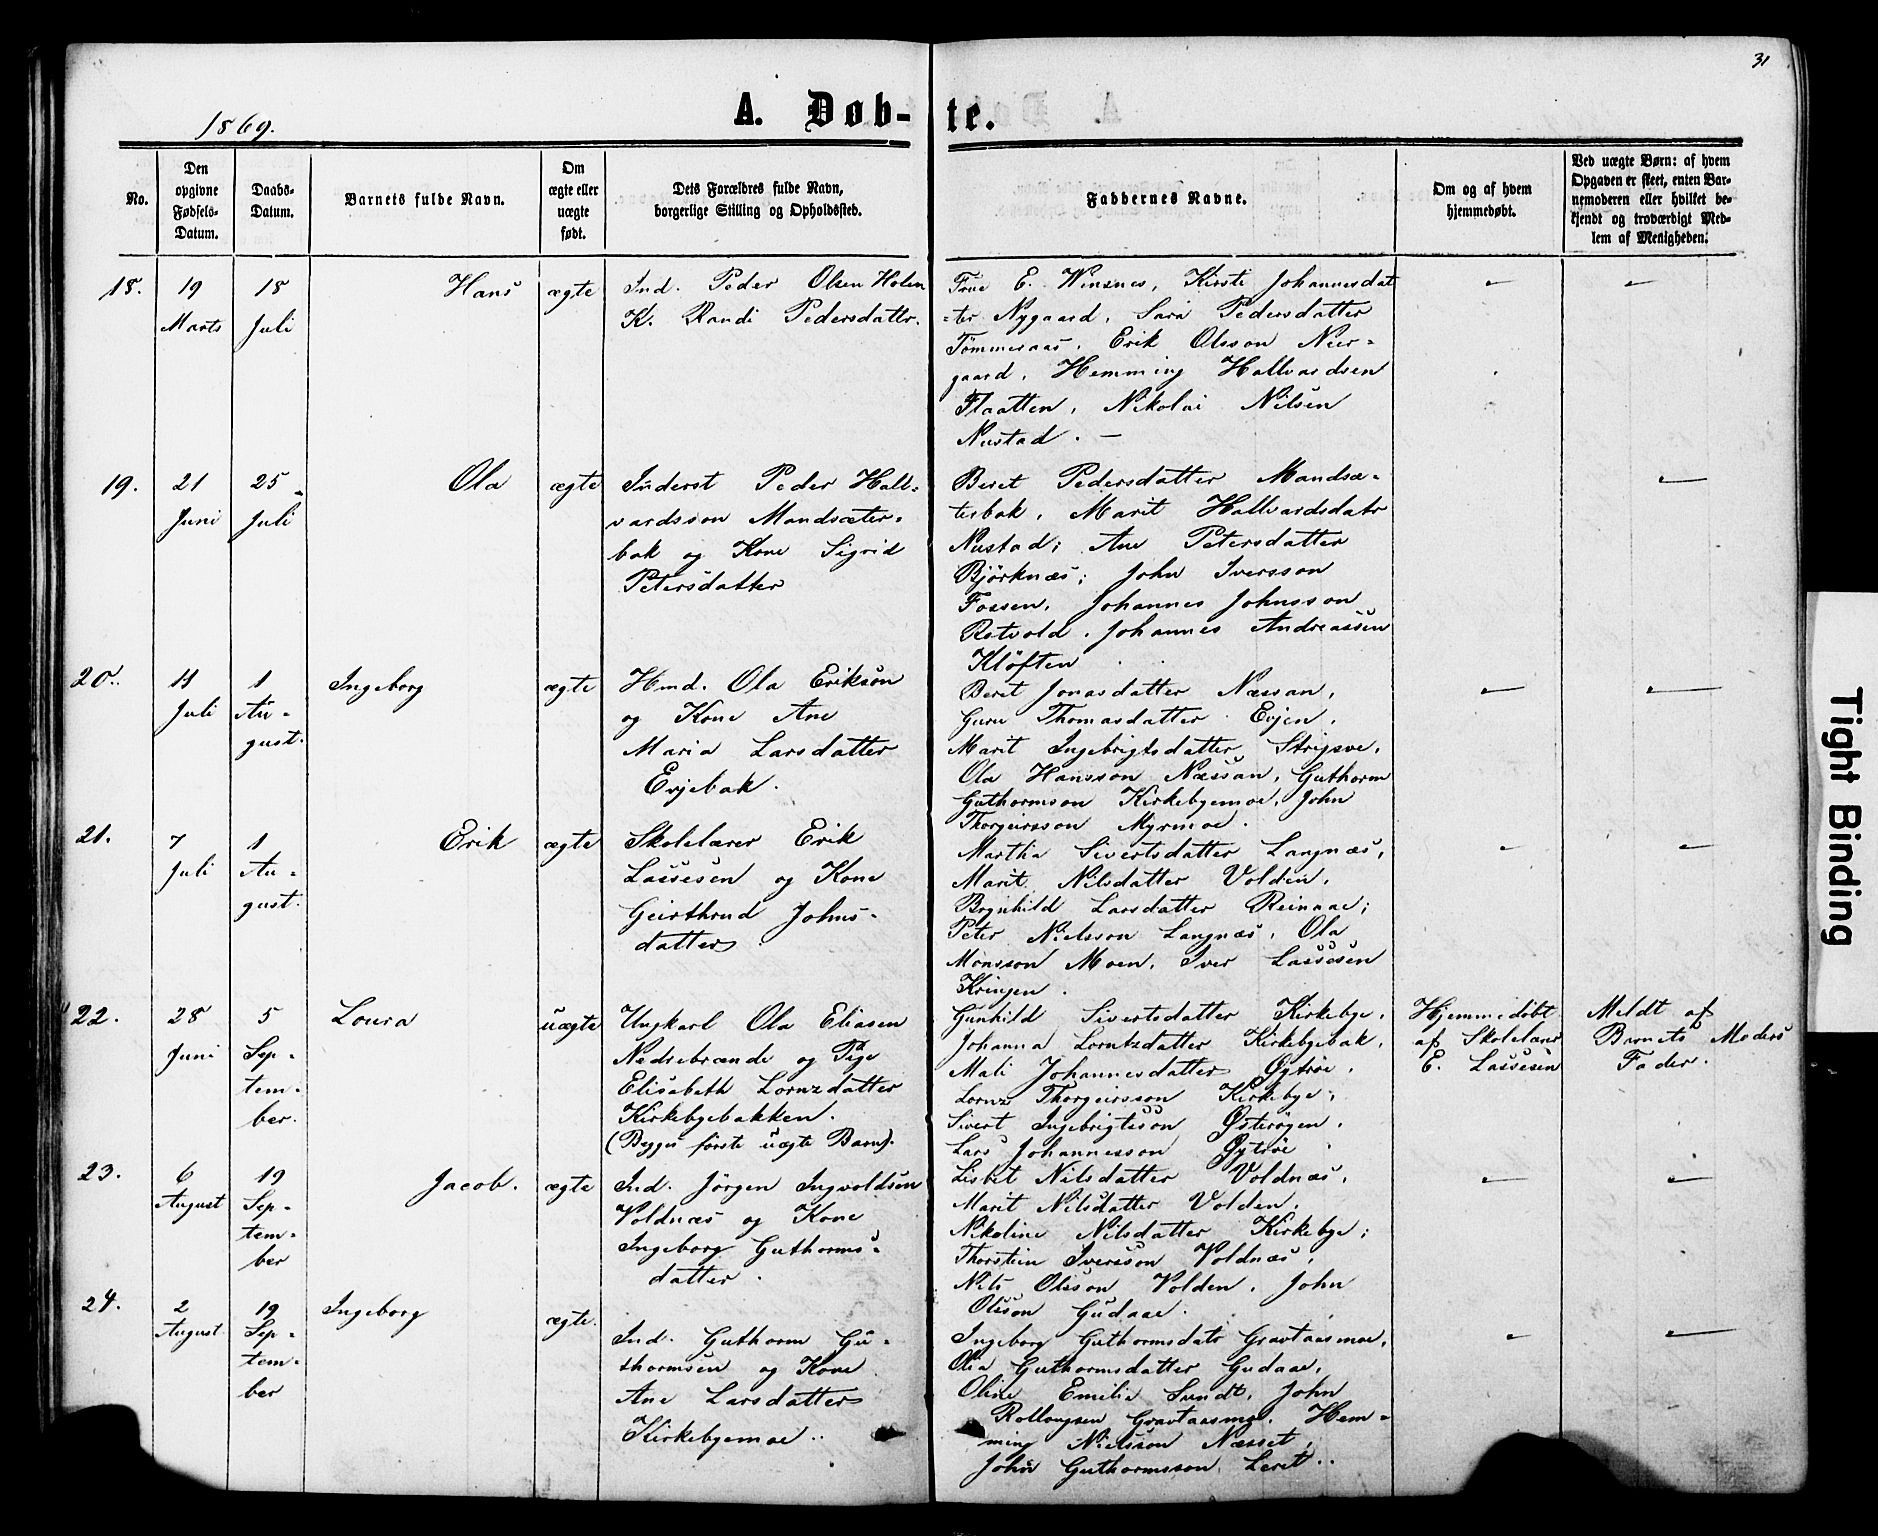 31
1869.
A. Døb-te.
No.
Den opgivne Fødsels-Datum.
Daabs-Datum.
Barnets fulde Navn.
Om ægte eller uægte født.
Dets Forældres fulde Navn, borgerlige Stilling og Opholdssted.
Faddernes Navne.
Om og af hvem hjemmedøbt.
Ved uægte Børn: af hvem Opgaven er skeet, enten Barnemoderen eller hvilket bekjendt og troværdigt Medlem af Menigheden.
18.
19
Marts
18
Juli
Hans
ægte
Ind. Peder Olsen Holen
K. Randi Pedersdattr.
Frue E. Winsnes, Kirsti Johannesdat
-ter Nygaard, Sara Pedersdatter
Tømmeraas, Erik Olsson Neer-
gaard, Hemming Hallvardsen
Flaatten, Nikolai Nilsen
Nustad. —
19.
21
Juni
25
Juli
Ola
ægte
Inderst Peder Hall-
vardsson Mandsæter-
bak og Kone Sigrid
Petersdatter
Beret Pedersdatter Mandsæ-
terbak, Marit Hallvardsdatr
Nustad; Ane Petersdatter
Björknæs; John Iversson
Fossen, Johannes Johnsson
Rotvold, Johannes Andreassen
Klöften
20.
11
Juli
1
Au-
gust.
Ingeborg
ægte
Hmd. Ola Erikson
og Kone Ane
Maria Larsdatter
Evjebak.
Beret Jonasdatter Næssan,
Guru Thomasdatter Evjen,
Marit Ingebrigtsdatter Strigsve,
Ola Hansson Næssan, Guthorm
Guthormson Kirkebyemoe, John
Thorgeirsson Myrmoe.
21.
7
Juli
1
Au-
gust.
Erik
ægte
Skolelærer Erik
Lassesen og Kone
Geirthrud Johns-
datter
Martha Sivertsdatter Langnæs,
Marit Nilsdatter Volden,
Brynhild Larsdatter Reinaae;
Peter Nielsson Langnæs, Ola
Monsson Moen, Iver Lassesen
Kringen.
22.
28
Juni
5
Sep-
tem-
ber.
Loura
uægte
Ungkarl Ola Eliasen
Nedrebrænde og Pige
Elisabeth Lornzdatter
Kirkebyebakken.
(Begges første uægte Barn).
Gunhild Sivertsdatter Kirkebye,
Johanna Lorntzdatter Kirkebyebak,
Mali Johannesdatter Øytrøe,
Lornz Thorgeirsson Kirkebye,
Sivert Ingebrigtsson Østerøgen,
Lars Johannesson Øytrøe
Hjemmedøbt
af Skolelærer
E. Lassesen
Meldt af
Barnets Moders
Fader.
23.
6
August
19
Sep-
tem-
ber
Jacob.
ægte
Ind. Jörgen Ingvoldsen
Voldnæs og Kone
Ingeborg Guthorms-
datter.
Lisbet Nilsdatter Voldnæs,
Marit Nilsdatter Volden,
Nikoline Nilsdatter Kirkebye;
Thorstein Iversson Voldnæs,
Nils Olsson Volden, John
Olsson Gudaae.
24.
2
August
19
Sep-
tem-
ber
Ingeborg
ægte.
Ind. Guthorm Gu-
thormsen og Kone
Ane Larsdatter
Kirkebyemoe.
Ingeborg Guthormsdatr Gravtaasmoe,
Olia Guthormsdatter Gudaae,
Oline Emilie Sundt, John
Rollougsen Gravtaasmo, Hem-
ming Nielsson Næsset,
John Guthormsson Leret.
Tight Binding